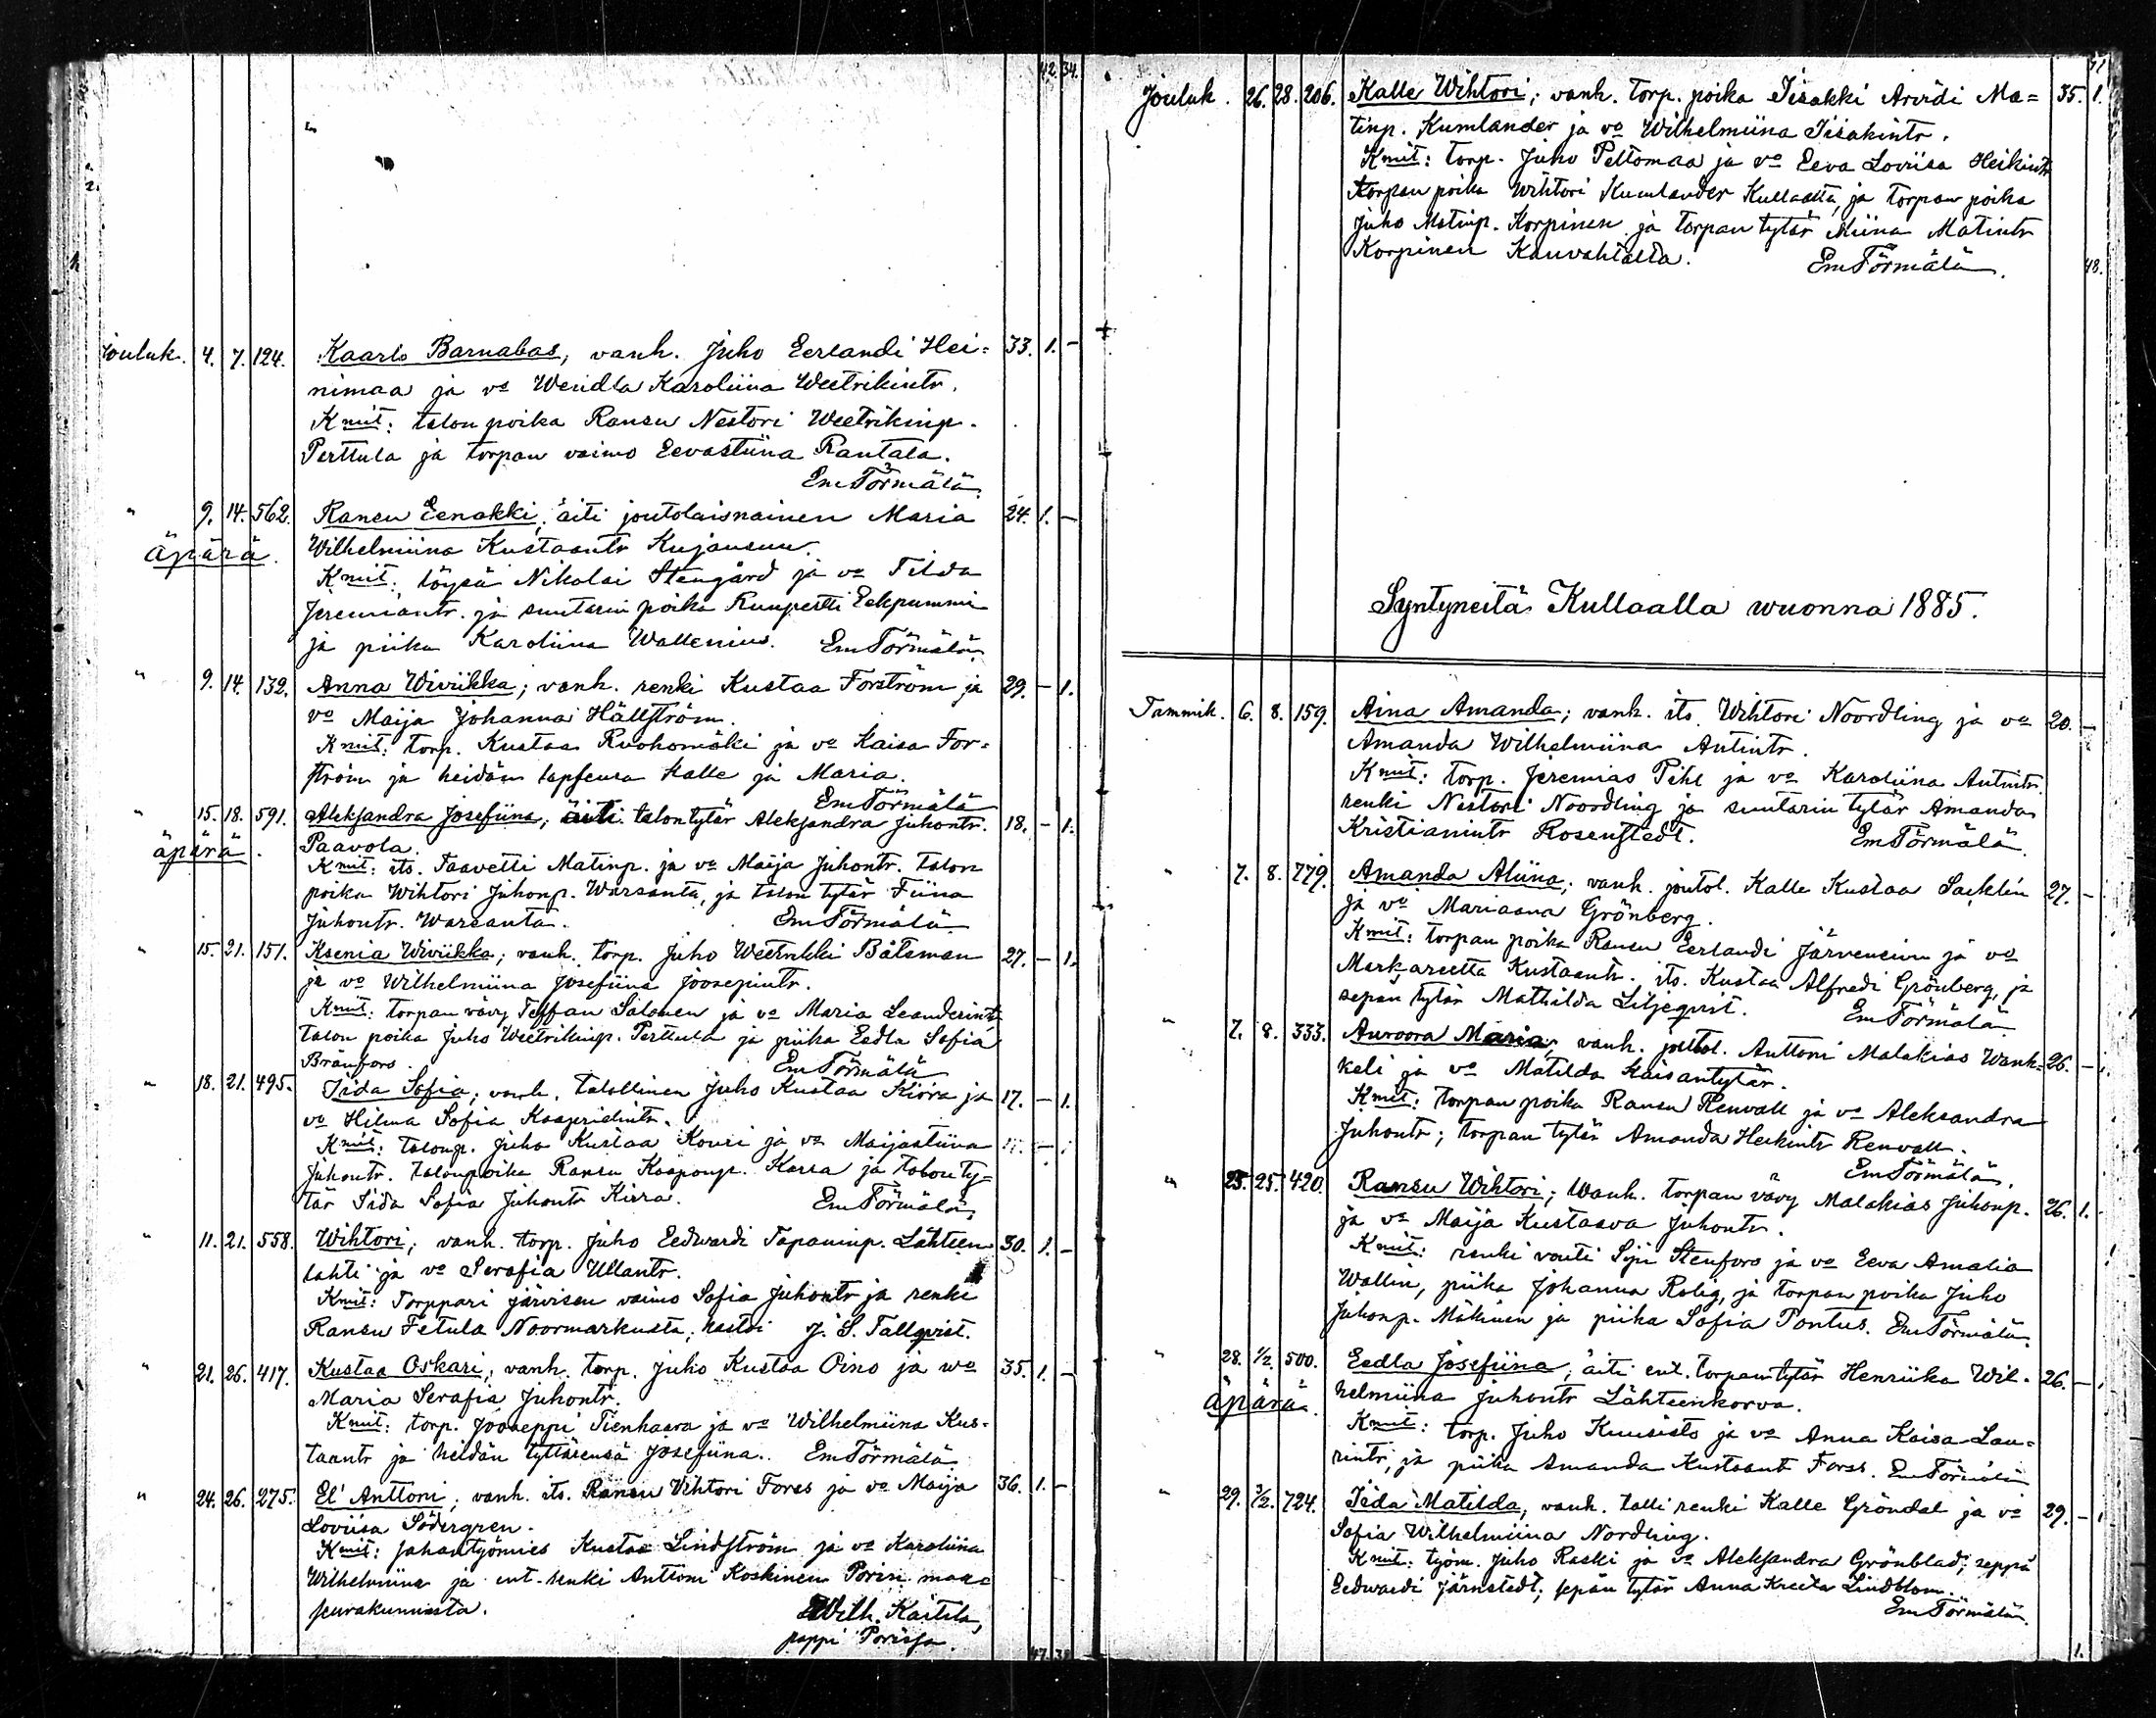 42. 34.
Jouluk. 4. 7. 124. Kaarlo Barnabas, vanh. Juho Eerlandi Hei= 33. 1. -
nimaa ja vo Wendla Karoliina Weetrikintr.
Kmit: talon poika Ransu Nestori Weetrikinp.
Perttula ja torpan vaimo Eevastiina Rantala.
Em Törmälä
" 9. 14. 562. Ransu Eenokki, äiti joutolaisnainen Maria 24. 1. -
äpärä. Wilhelmiina Kustaantr Kujansuu.
Kmit: löysä Nikolai Stengård ja vo Tilda
Jeremiantr. ja suutarin poika Ruupertti Ekpummi
ja piika Karoliina Wallenius. Em Törmälä
" 9. 14. 132. Anna Wiviikka; vanh. renki Kustaa Forström ja 29. - 1.
vo Maija Johanna Hällström.
Kmit: torp. Kustaa Ruohomäki ja vo Kaisa For=
ström ja heidän lapsensa Kalle ja Maria.
Em Törmälä
" 15. 18. 591. Aleksandra Josefiina; äiti talontytär Aleksandra Juhontr. 18. - 1.
äpärä. Paavola.
Kmit: its. Taavetti Matinp. ja vo Maija Juhontr. talon
poika Wihtori Juhonp. Warsanta, ja talon tytär Fiina
Juhontr. Warsanta. Em Törmälä
" 15. 21. 151. Ksenia Wiviikka; vanh. torp. Juho Weetrikki Båtsman 27. - 1.
ja vo Wilhelmiina Josefiina Joosepintr.
Kmit: torpan vävy Teffan Salonen ja vo Maria Leanderintr
talon poika Juho Weetrikinp. Perttula ja piika Eedla Sofia
Bränfors. Em Törmälä
" 18. 21. 495. Iida Sofia; vanh. talollinen Juho Kustaa Kiora ja 17. - 1.
vo Hilma Sofia Kasperintr.
Kmit: talonp. Juho Kustaa Kouri ja vo Maijastiina
Juhontr. talonpoika Ransu Kaaponp. Karra ja talon ty=
tär Iida Sofia Juhontr Kiora. Em Törmälä
" 11. 21. 558. Wihtori; vanh. torp. Juho Eedwardi Tapaninp. Lähteen 30. 1. -
lahti ja vo Serafia Ullantr.
Kmit: Torppari Järvisen vaimo Sofia Juhontr ja renki
Ransu Fetula Noormarkusta, kastoi J. S. Tallqvist.
" 21. 26. 417. Kustaa Oskari, vanh. torp. Juho Kustaa Oino ja wo 35. 1. -
Maria Serafia Juhontr.
Kmit: torp. Jooseppi Tienhaara ja vo Wilhelmiina Kus=
taantr ja heidän tyttärensä Josefiina. Em Törmälä
" 24. 26. 275. El' Anttoni; vanh. its. Ransu Vihtori Forss ja vo Maija 36. 1. -
Loviisa Södergren.
Kmit: Sahantyömies Kustaa Lindström ja vo Karoliina
Wilhelmiina ja ent. renki Anttoni Koskinen Porin maa=
seurakunnasta. Wilh. Kaitila,
pappi Porissa.
Jouluk. 26. 28. 206. Kalle Wihtori; vanh. torp. poika Iisakki Arvidi Ma= 35. 1.
tinp. Kumlander ja vo Wilhelmiina Iisakintr.
Kmit: torp. Juho Peltomaa ja vo Eeva Loviisa Heikintr
torpan poika Wihtori Kumlander Kullaalta, ja torpan poika
Juho Matinp. Korpinen ja torpan tytär Miina Matintr
Korpinen Kauvahtalta. Em Törmälä.
48.
Syntyneitä Kullaalla wuonna 1885.
Tammik. 6. 8. 159. Aina Amanda; vanh. its. Wihtori Noordling ja vo 20. -
Amanda Wilhelmiina Antintr.
Kmit: torp. Jeremias Pihl ja vo Karoliina Antintr.
renki Nestori Noordling ja suutarin tytär Amanda
Kristianintr Rosenstedt. Em Törmälä.
" 7. 8. 779. Amanda Aliina; vanh. joutol. Kalle Kustaa Sacklén 27. -
ja vo Mariaana Grönberg.
Kmit: torpan poika Ransu Eerlandi Järvensivu ja vo
Markareetta Kustaantr. its. Kustaa Alfredi Grönberg, ja
sepän tytär Mathilda Liljeqvist. Em Törmälä
" 7. 8. 333. Auroora Maria; vanh. puttol. Anttoni Malakias Wank= 26. -
keli ja vo Matilda Kaisantytär.
Kmit: torpan poika Ransu Renvall ja vo Aleksandra
Juhontr; torpan tytär Amanda Heikintr Renvall.
Em Törmälä.
" 25. 25. 420. Ransu Wihtori; Wanh. torpan vävy Malakias Juhonp. 26. 1.
ja vo Maija Kustaava Juhontr.
Kmit: renki vouti Stenfors ja vo Eeva Amalia
Wallin, piika Johanna Rolig, ja torpan poika Juho
Juhonp. Mäkinen ja piika Sofia Pontus. Em Törmälä
" 28. 1/2. 500. Eedla Josefiina, äiti ent. torpan tytär Henriika Wil= 26. -
Äpärä. helmiina Juhontr Lähteenkorva.
Kmit: torp. Juho Kuusisto ja vo Anna Kaisa Lau=
rintr, ja piika Amanda Kustaantr Forss. Em Törmälä
" 29. 3/2. 724. Iida Matilda, vanh. talli renki Kalle Gröndal ja vo 29. -
Sofia Wilhelmiina Nordling.
Kmit: työm. Juho Raski ja vo Aleksandra Grönblad; seppä
Eedwardi Järnstedt; sepän tytär Anna Kreeta Lindblom.
Em Törmälä